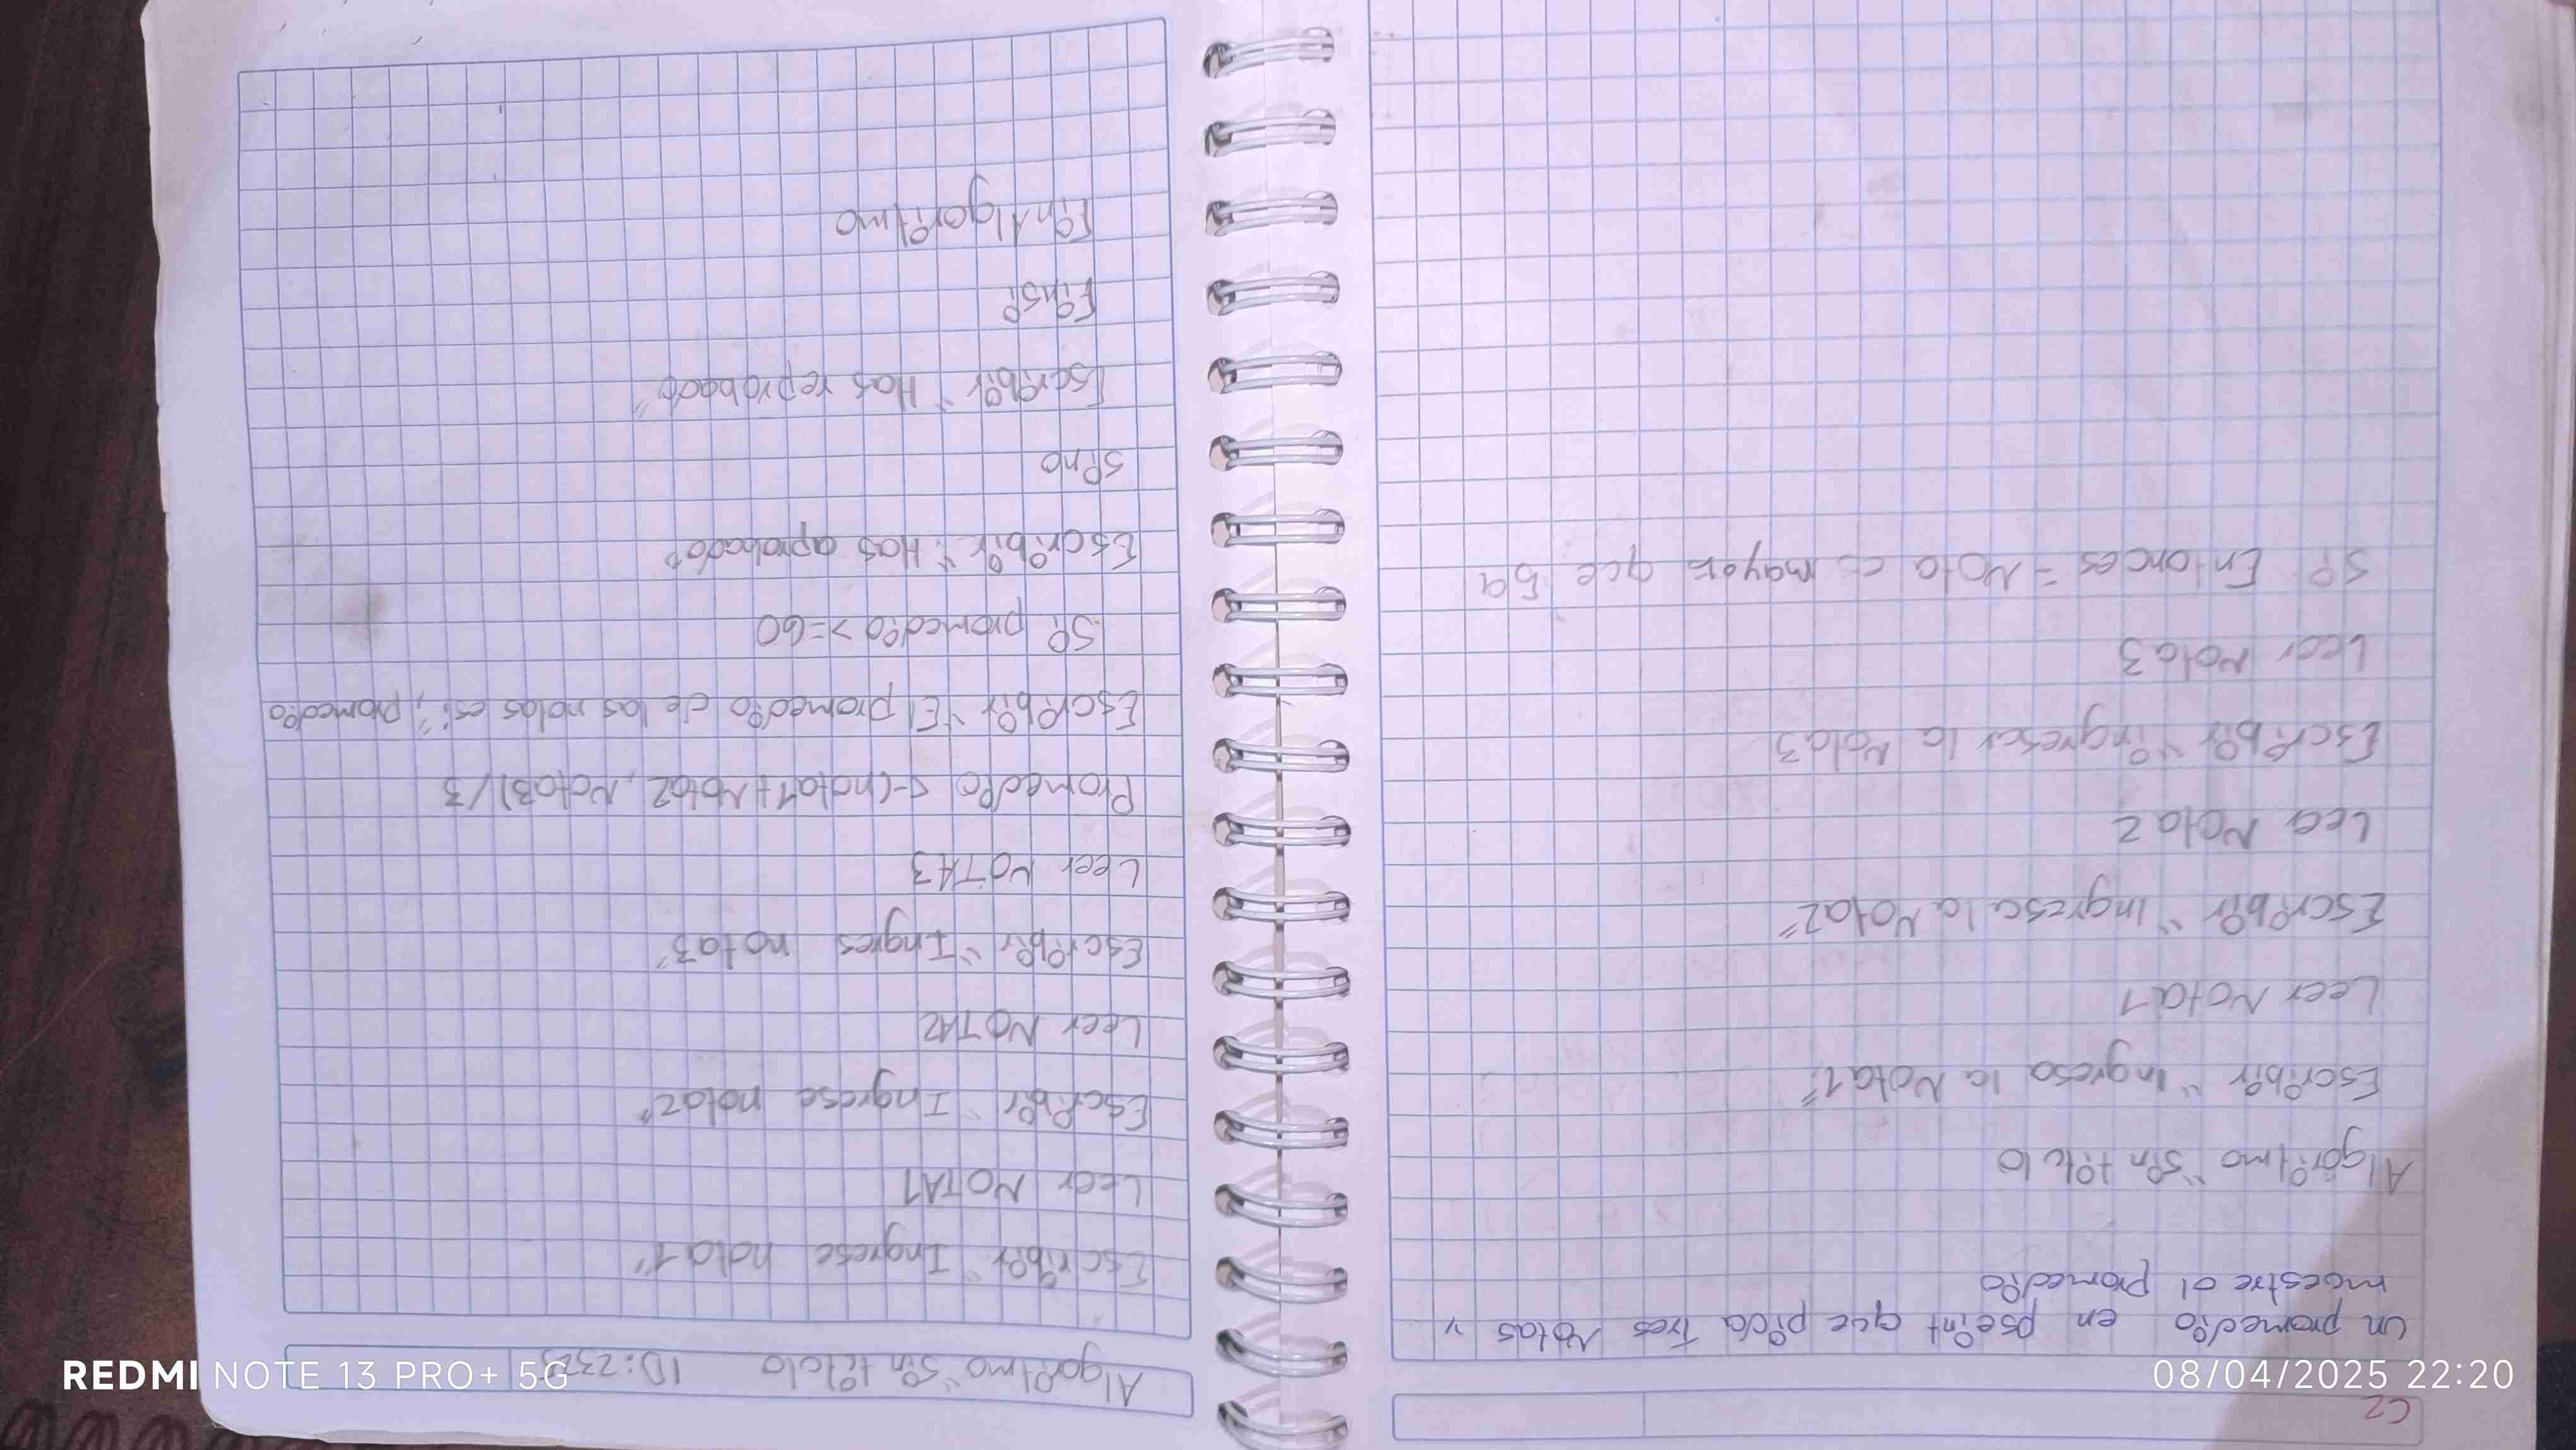 C2
Un promedio en pseint que pida Tres Notas y
muestre al promedio
Algoritmo "Sin titulo
Escribir "Ingresa la Nota1"
Leer Nota1
Escribir "Ingresa la Nota2"
Leer Nota2
Escribir "ingresar la Nota3
Leer Nota3
Si Entonces = Nota es mayor que 5a
Algoritmo "Sin titulo ID:232
Escribir "Ingrese nota1"
Leer NOTA1
Escribir "Ingrese nota2"
Leer NOTA2
Escribir "Ingres nota3"
Leer NOTA3
Promedio <-(nota1+Nota2, Nota3)/3
Escribir "El promedio de las notas es:", promedio
Si promedio >=60
Escribir "Has aprobado"
Sino
Escribir "Has reprobado"
FinSi
FinAlgoritmo
REDMI NOTE 13 PRO+ 5G
08/04/2025 22:20